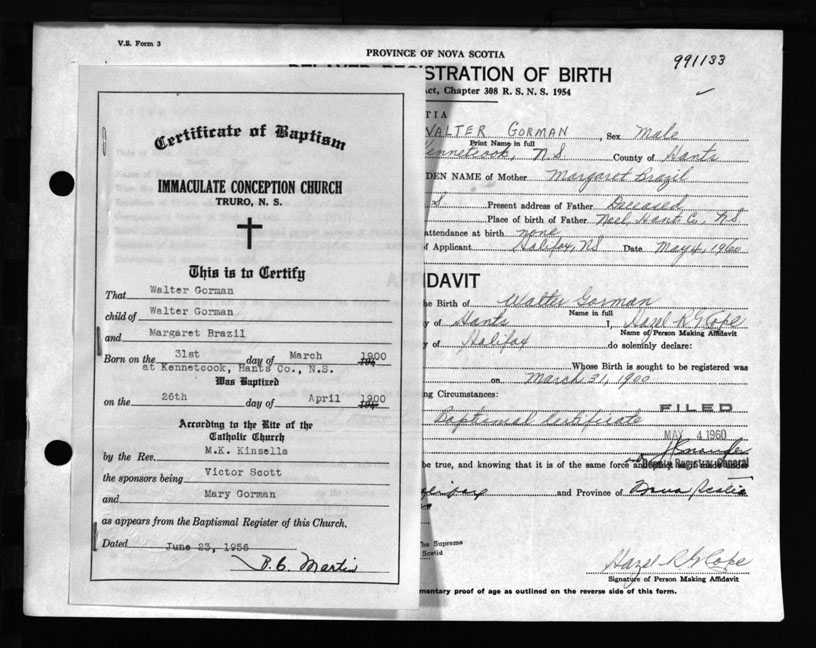 V.S. Form 3
PROVINCE OF NOVA SCOTIA
991133
STRATION OF BIRTH
Act, Chapter 308 R. S. N. S. 1954
Certificate of Baptism
IMMACULATE CONCEPTION CHURCH
TRURO, N. S.
This is to Certify
That Walter Gorman
child of Walter Gorman
and Margaret Brazil
Born on the 31st day of March 1900
at Kennetcook, Hants Co., N.S.
Was Baptized
on the 26th day of April 1900
According to the Rite of the
Catholic Church
by the Rev. M.K. Kinsella
the sponsors being Victor Scott
and Mary Gorman
as appears from the Baptismal Register of this Church.
Dated June 23, 1956
B. C. Martin
TIA
WALTER GORMAN, Sex Male
Print Name in full
Kennetcook, N.S. County of Hants
DEN NAME of Mother Margaret Brazil
S Present address of Father Deceased
Place of birth of Father Noel, Hants Co, NS
attendance at birth none
of Applicant Halifax, NS Date May 4, 1960
IDAVIT
he Birth of Walter Gorman
Name in full
y of Hants I, Hazel R G Cope
Name of Person Making Affidavit
y of Halifax do solemnly declare:
Whose Birth is sought to be registered was
on March 31, 1900
ng Circumstances:
Baptismal Certificate
FILED
MAY 4 1960
Deputy Registrar General
be true, and knowing that it is of the same force and as if made under
alifax and Province of Nova Scotia
he Supreme
Scotia
Hazel R G Cope
Signature of Person Making Affidavit
mentary proof of age as outlined on the reverse side of this form.